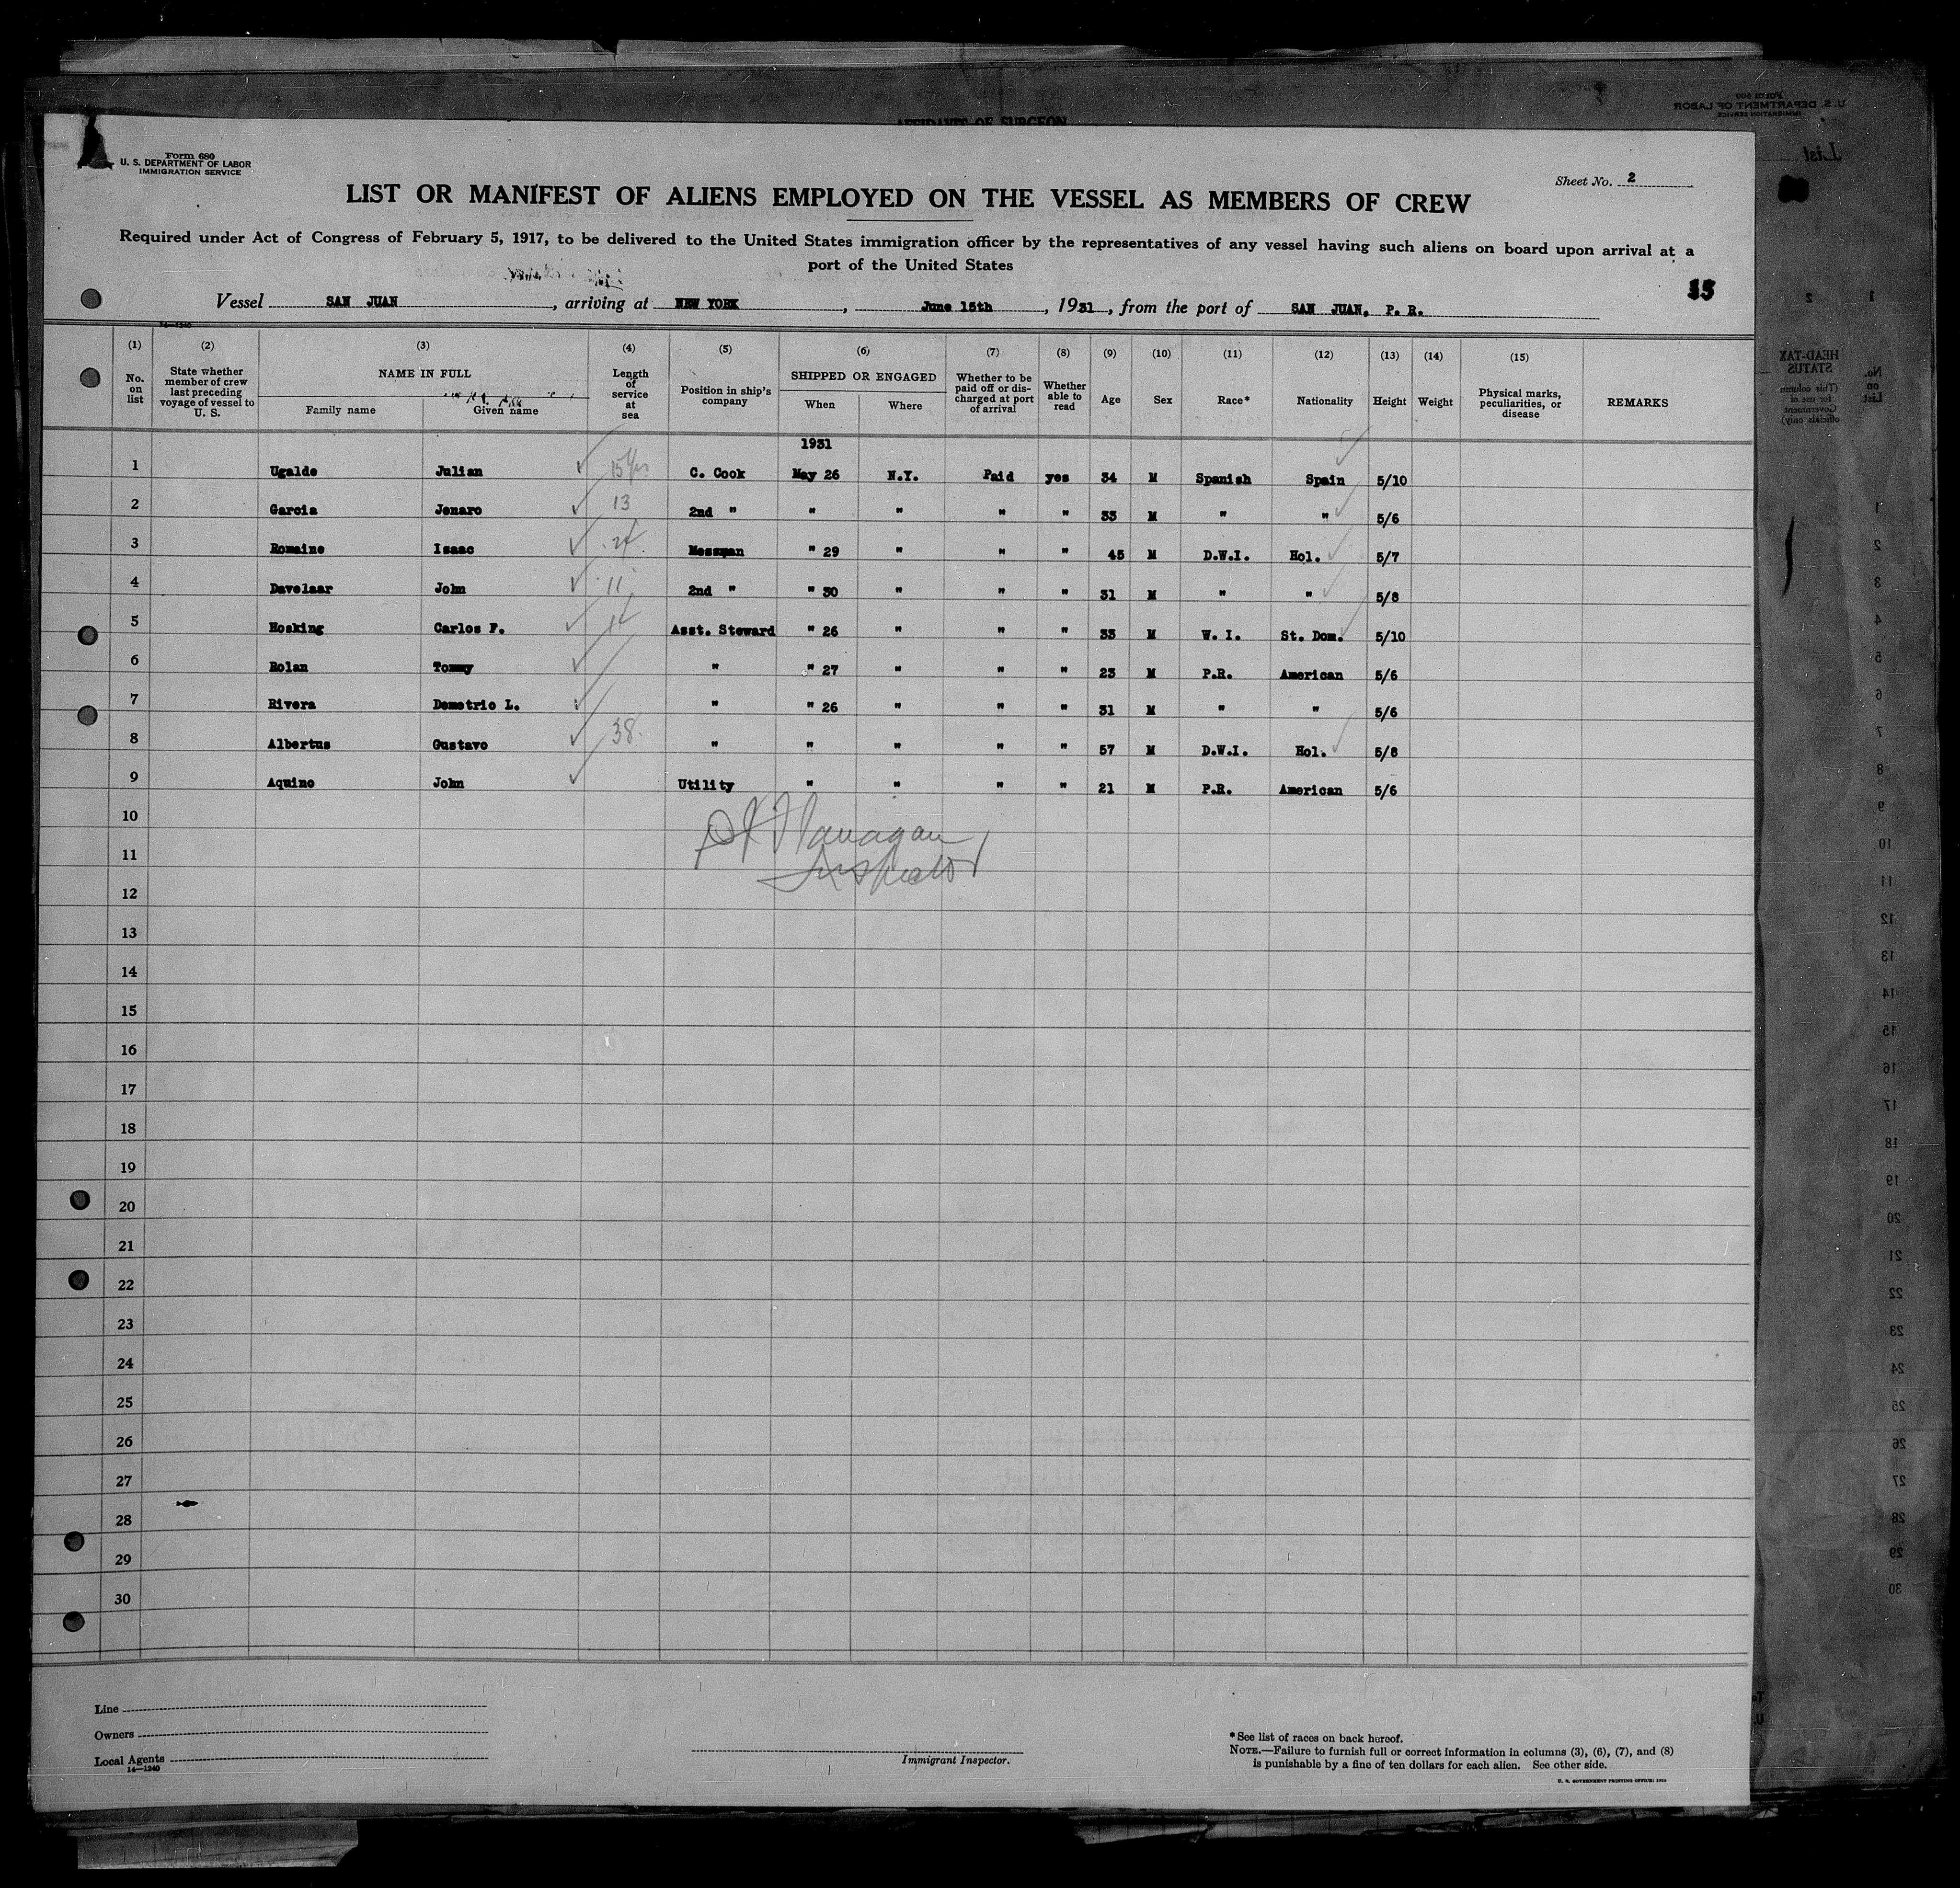 AFFIDAVIT OF SURGEON
Form 680
U. S. DEPARTMENT OF LABOR
IMMIGRATION SERVICE
Sheet No. 2
LIST OR MANIFEST OF ALIENS EMPLOYED ON THE VESSEL AS MEMBERS OF CREW
Required under Act of Congress of February 5, 1917, to be delivered to the United States immigration officer by the representatives of any vessel having such aliens on board upon arrival at a
port of the United States
Vessel SAN JUAN, arriving at NEW YORK, June 15th, 1931, from the port of SAN JUAN, P. R.
14—1240
(1) No. on list
(2) State whether member of crew last preceding voyage of vessel to U. S.
(3) NAME IN FULL Family name Given name
(4) Length of service at sea
(5) Position in ship's company
(6) SHIPPED OR ENGAGED When Where
(7) Whether to be paid off or discharged at port of arrival
(8) Whether able to read
(9) Age
(10) Sex
(11) Race*
(12) Nationality
(13) Height
(14) Weight
(15) Physical marks, peculiarities, or disease
REMARKS
1931
1 Ugalde Julian ✓ 15 yrs C. Cook May 26 N.Y. Paid yes 34 M Spanish Spain ✓ 5/10
2 Garcia Jenaro ✓ 13 2nd " " " " " 33 M " " ✓ 5/6
3 Romaine Isaac ✓ 24 Messman " 29 " " " 45 M D.W.I. Hol. ✓ 5/7
4 Davelaar John ✓ 11 2nd " " 30 " " " 31 M " " ✓ 5/8
5 Hosking Carlos F. ✓ 14 Asst. Steward " 26 " " " 33 M W. I. St. Dom. ✓ 5/10
6 Rolan Tommy ✓ " " 27 " " " 23 M P.R. American 5/6
7 Rivera Demetrio L. ✓ " " 26 " " " 31 M " " 5/6
8 Albertus Gustavo ✓ 38 " " " " " 57 M D.W.I. Hol. ✓ 5/8
9 Aquino John ✓ Utility " " " " 21 M P.R. American 5/6
10
Flanagan
11
Inspector
12
13
14
15
16
17
18
19
20
21
22
23
24
25
26
27
28
29
30
Line
Owners
Local Agents
14—1240
Immigrant Inspector.
*See list of races on back hereof.
NOTE.—Failure to furnish full or correct information in columns (3), (6), (7), and (8)
is punishable by a fine of ten dollars for each alien. See other side.